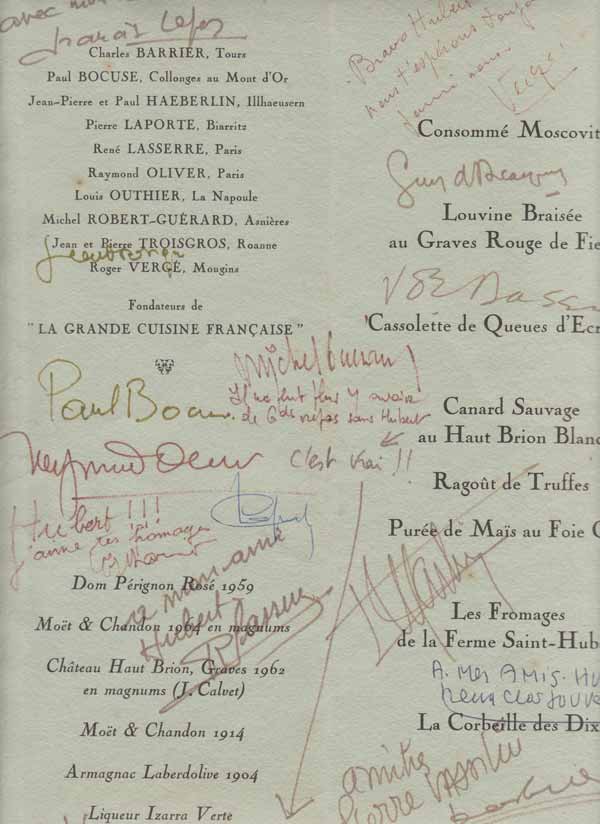 avec
Charles BARRIER, Tours
Paul BOCUSE, Collonges au Mont d'Or
Jean-Pierre et Paul HAEBERLIN, Illhaeusern
Pierre LAPORTE, Biarritz
René LASSERRE, Paris
Raymond OLIVER, Paris
Louis OUTHIER, La Napoule
Michel ROBERT-GUÉRARD, Asnières
Jean et Pierre TROISGROS, Roanne
Roger VERGÉ, Mougins
Fondateurs de
"LA GRANDE CUISINE FRANÇAISE"
Michel Guerard
Il ne peut plus y avoir
de Gds repas sans Hubert
Paul Bocuse
Raymond Oliver
c'est vrai !!
Hubert !!!
j'aime tes fromages
Dom Pérignon Rosé 1959
à mon ami
Hubert
R Lasserre
Moët & Chandon 1964 en magnums
Château Haut Brion, Graves 1962
en magnums (J. Calvet)
Moët & Chandon 1914
Armagnac Laberdolive 1904
Liqueur Izarra Verte
Bravo Hubert
nous t'espérons
parmi nous
Consommé Moscovit
Louvine Braisée
au Graves Rouge de Fie
Cassolette de Queues d'Ecr
Canard Sauvage
au Haut Brion Blanc
Ragoût de Truffes
Purée de Maïs au Foie G
Les Fromages
de la Ferme Saint-Hub
A. Mes Amis. Hu
La Corbeille des Dix
amitié
Pierre